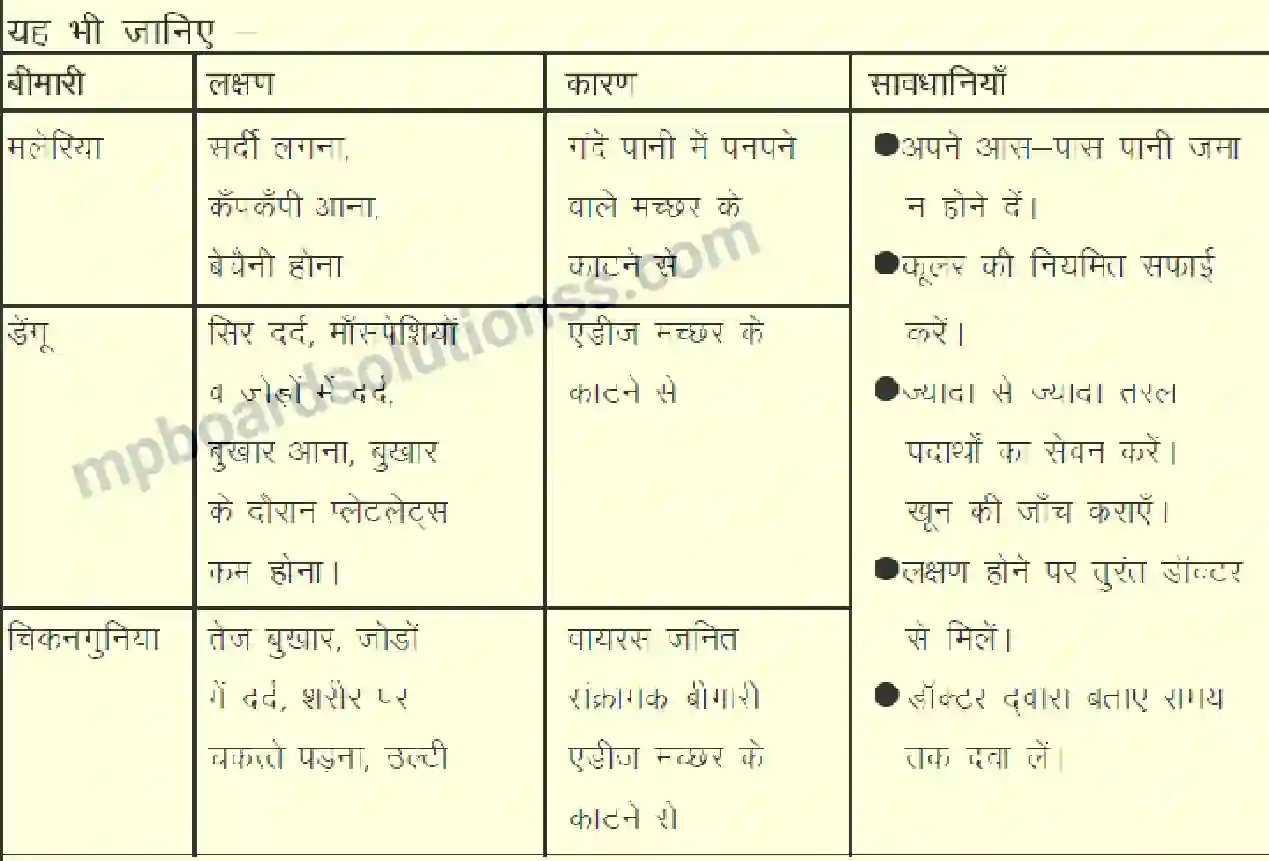 यह भी जानिए –
बीमारी
लक्षण
कारण
सावधानियाँ
मलेरिया
सर्दी लगना,
कँपकँपी आना,
बेचैनी होना
गंदे पानी में पनपने
वाले मच्छर के
काटने से
डेंगू
सिर दर्द, माँस्पेशियों
व जोड़ों में दर्द,
बुखार आना, बुखार
के दौरान प्लेटलेट्स
कम होना।
एडीज मच्छर के
काटने से
चिकनगुनिया
तेज बुखार, जोडों
में दर्द, शरीर पर
चकत्ते पड़ना, उल्टी
वायरस जनित
संक्रामक बीमारी
एडीज मच्छर के
काटने से
●अपने आस–पास पानी जमा
न होने दें।
●कूलर की नियमित सफाई
करें।
●ज्यादा से ज्यादा तरल
पदार्थों का सेवन करें।
खून की जाँच कराएँ।
●लक्षण होने पर तुरंत डॉक्टर
से मिलें।
● डॉक्टर द्वारा बताए समय
तक दवा लें।
mpboardsolutionss.com